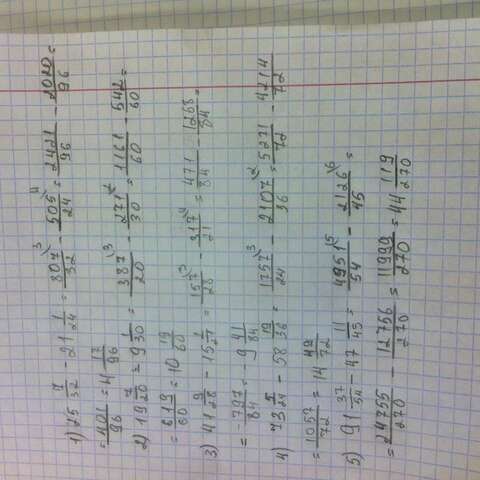 1) 25 7/32 - 21 1/24 = 807/32 \3 - 505/24 \4 = 2421/96 - 2020/96 =
= 401/96 = 4 17/96
2) 19 7/20 = 9 1/30 = 387/20 \3 - 271/30 \2 = 1161/60 - 542/60 =
= 619/60 = 10 19/60
3) 41 9/28 - 15 2/21 = 157/28 \3 - 317/21 \4 = 471/84 - 1268/84 =
= -797/84 = -9 41/84
4) 73 5/24 - 58 19/36 = 1757/24 \3 - 2107/36 \2 = 5271/72 - 4214/72
= 1057/72 = 14 49/72
5) 91 37/54 - 47 11/45 = 4951/54 \5 - 2126/45 \6 =
= 24755/270 - 12756/270 = 11999/270 = 44 119/270